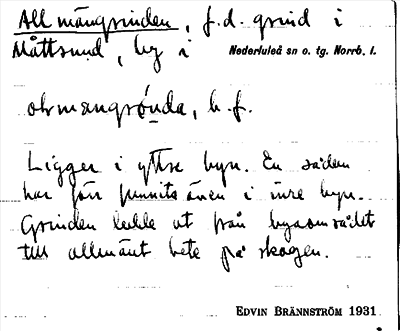 Allmängrinden, f.d. grind i
Måttsund, by i Nederluleå sn o. tg. Norrb. l.
b. f.
Ligger i yttre byn. En sådan
har förr funnits även i inre byn.
Grinden ledde ut från byaområdet
till allmänt bete på skogen.
EDVIN BRÄNNSTRÖM 1931